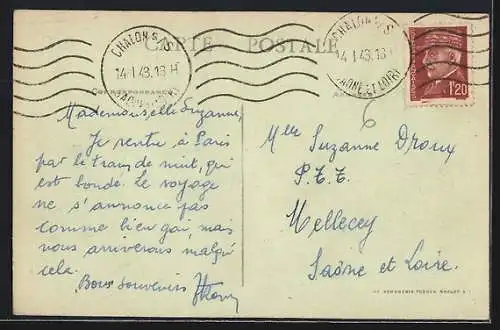 CARTE POSTALE
CHALON S/S
14-1 43.13H
SAONE ET LOIRE
CHALON S/S
14-1 43.13
SAONE ET LOIRE
1f20
CORRESPONDANCE
Mademoiselle Suzanne,
Je rentre à Paris
par le train de nuit, qui
est bondé. Le voyage
ne s'annonce pas
comme bien gai, mais
nous arriverons malgré
cela.
Bons souvenirs
Mlle Suzanne Droux
P.T.T.
Mellecey
Saône et Loire.